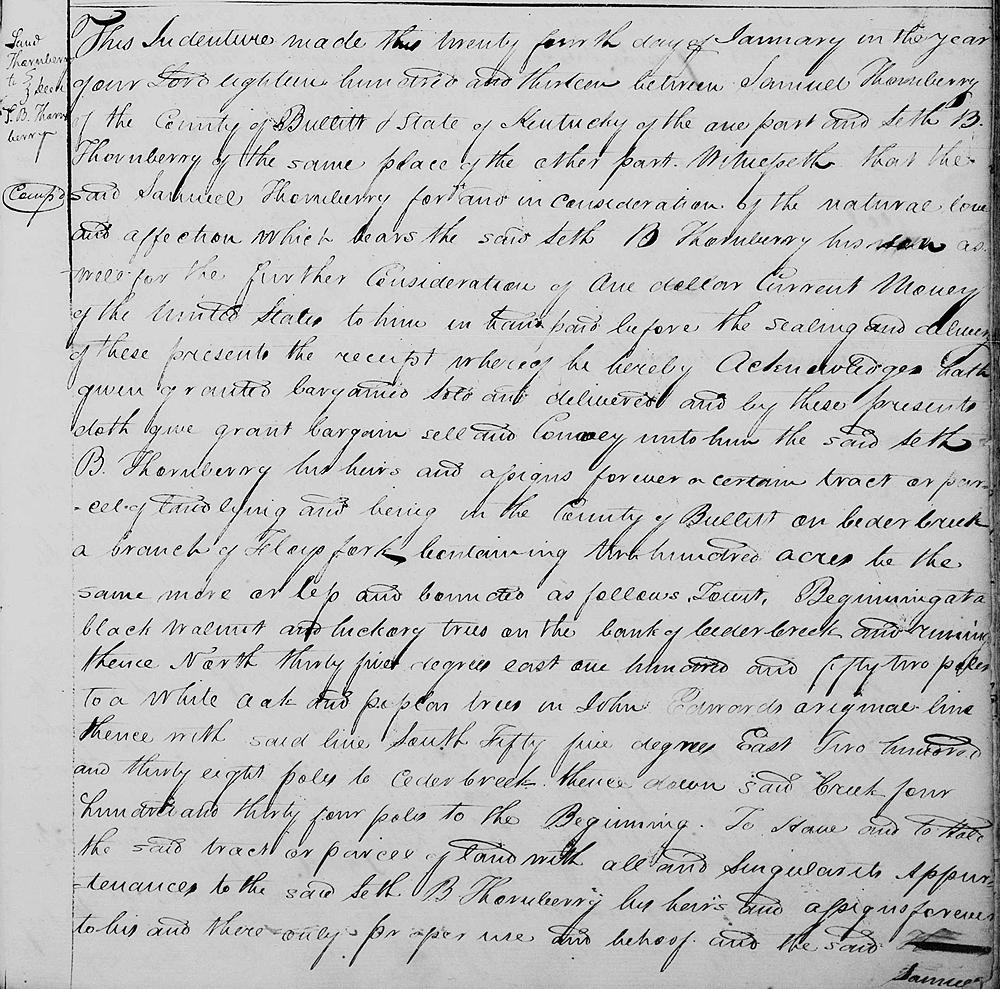 Saml
Thornberry
to
} deed
S. B. Thorn
berry
Comp'd
This Indenture made this twenty fourth day of January in the year
of our Lord eighteen hundred and thirteen between Samuel Thornberry
of the County of Bullitt & State of Kentucky of the one part and Seth B.
Thornberry of the same place of the other part. Witnesseth that the
said Samuel Thornberry for and in consideration of the natural love
and affection which bears the said Seth B Thornberry his son as
well for the further Consideration of One dollar Current Money
of the United States to him in hand paid before the sealing and delivery
of these presents the receipt whereof he hereby Acknowledges hath
given granted bargained sold and delivered and by these presents
doth give grant bargain sell and Convey unto him the said Seth
B. Thornberry his heirs and assigns forever a certain tract or par-
-cel of land lying and being in the County of Bullitt on Ceder Creek
a branch of Floyds fork containing two hundred acres be the
same more or less and bounded as follows, Towit, Beginning at a
black Walnut and hickory trees on the bank of Ceder Creek and runing
thence North thirty five degrees east one hundred and fifty two poles
to a white oak and poplar trees in John Edwards original line
thence with said line South Fifty five degrees East Two hundred
and thirty eight poles to Ceder Creek thence down said Creek four
hundred and thirty four poles to the Beginning. To Have and to Hold
the said tract or parcel of land with all and Singular its Appur-
-tenances to the said Seth B Thornberry his heirs and assigns forever
to his and there only proper use and behoof and the said
Samuel